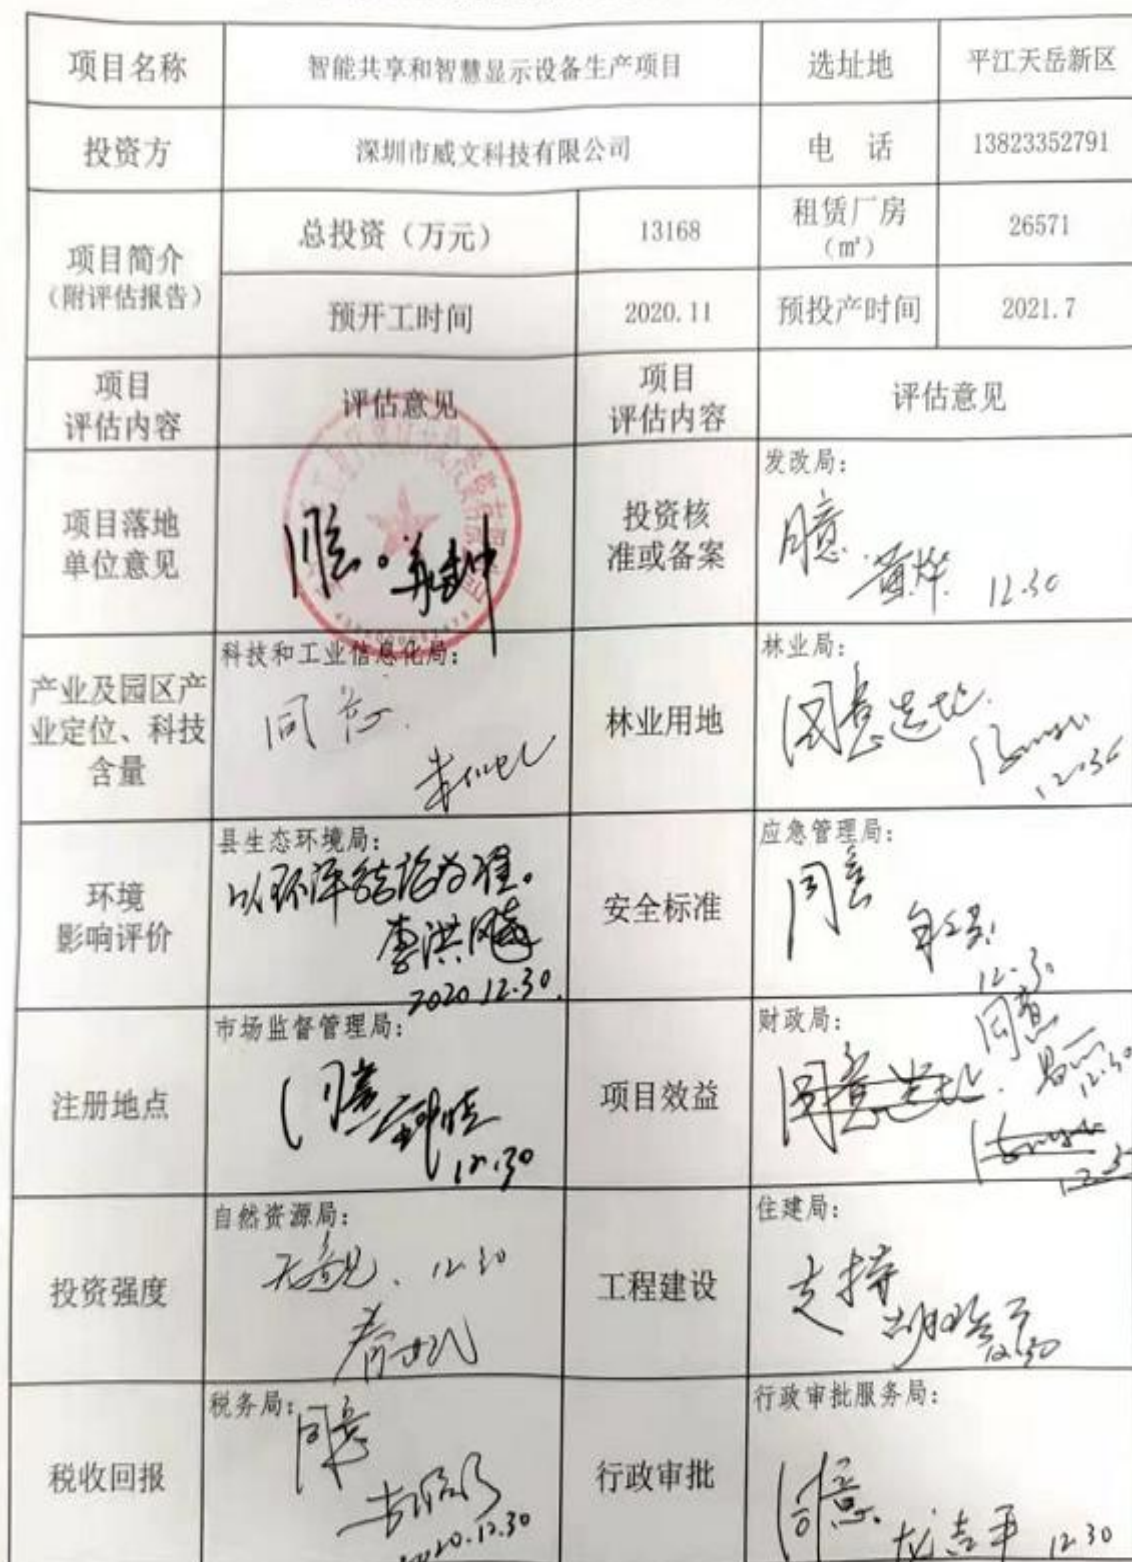 项目名称 智能共享和智慧显示设备生产项目 选址地 平江天岳新区
投资方 深圳市威文科技有限公司 电 话 13823352791
项目简介
(附评估报告)
总投资（万元） 13168 租赁厂房
(㎡) 26571
预开工时间 2020.11 预投产时间 2021.7
项目
评估内容
评估意见
项目
评估内容
评估意见
项目落地
单位意见
同意。
投资核
准或备案
发改局：
同意
黄烨 12.30
产业及园区产
业定位、科技
含量
科技和工业信息化局：
同意.
林业用地
林业局：
同意选址.
环境
影响评价
县生态环境局：
以环评结论为准。
李洪
2020.12.30.
安全标准
应急管理局：
同意
12.30
注册地点
市场监督管理局：
同意
12.30
项目效益
财政局：
同意
12.30
同意选址.
投资强度
自然资源局：
无意见. 12.30
工程建设
住建局：
支持
12.30
税收回报
税务局：
同意
2020.12.30
行政审批
行政审批服务局：
同意.
龙吉平 12.30